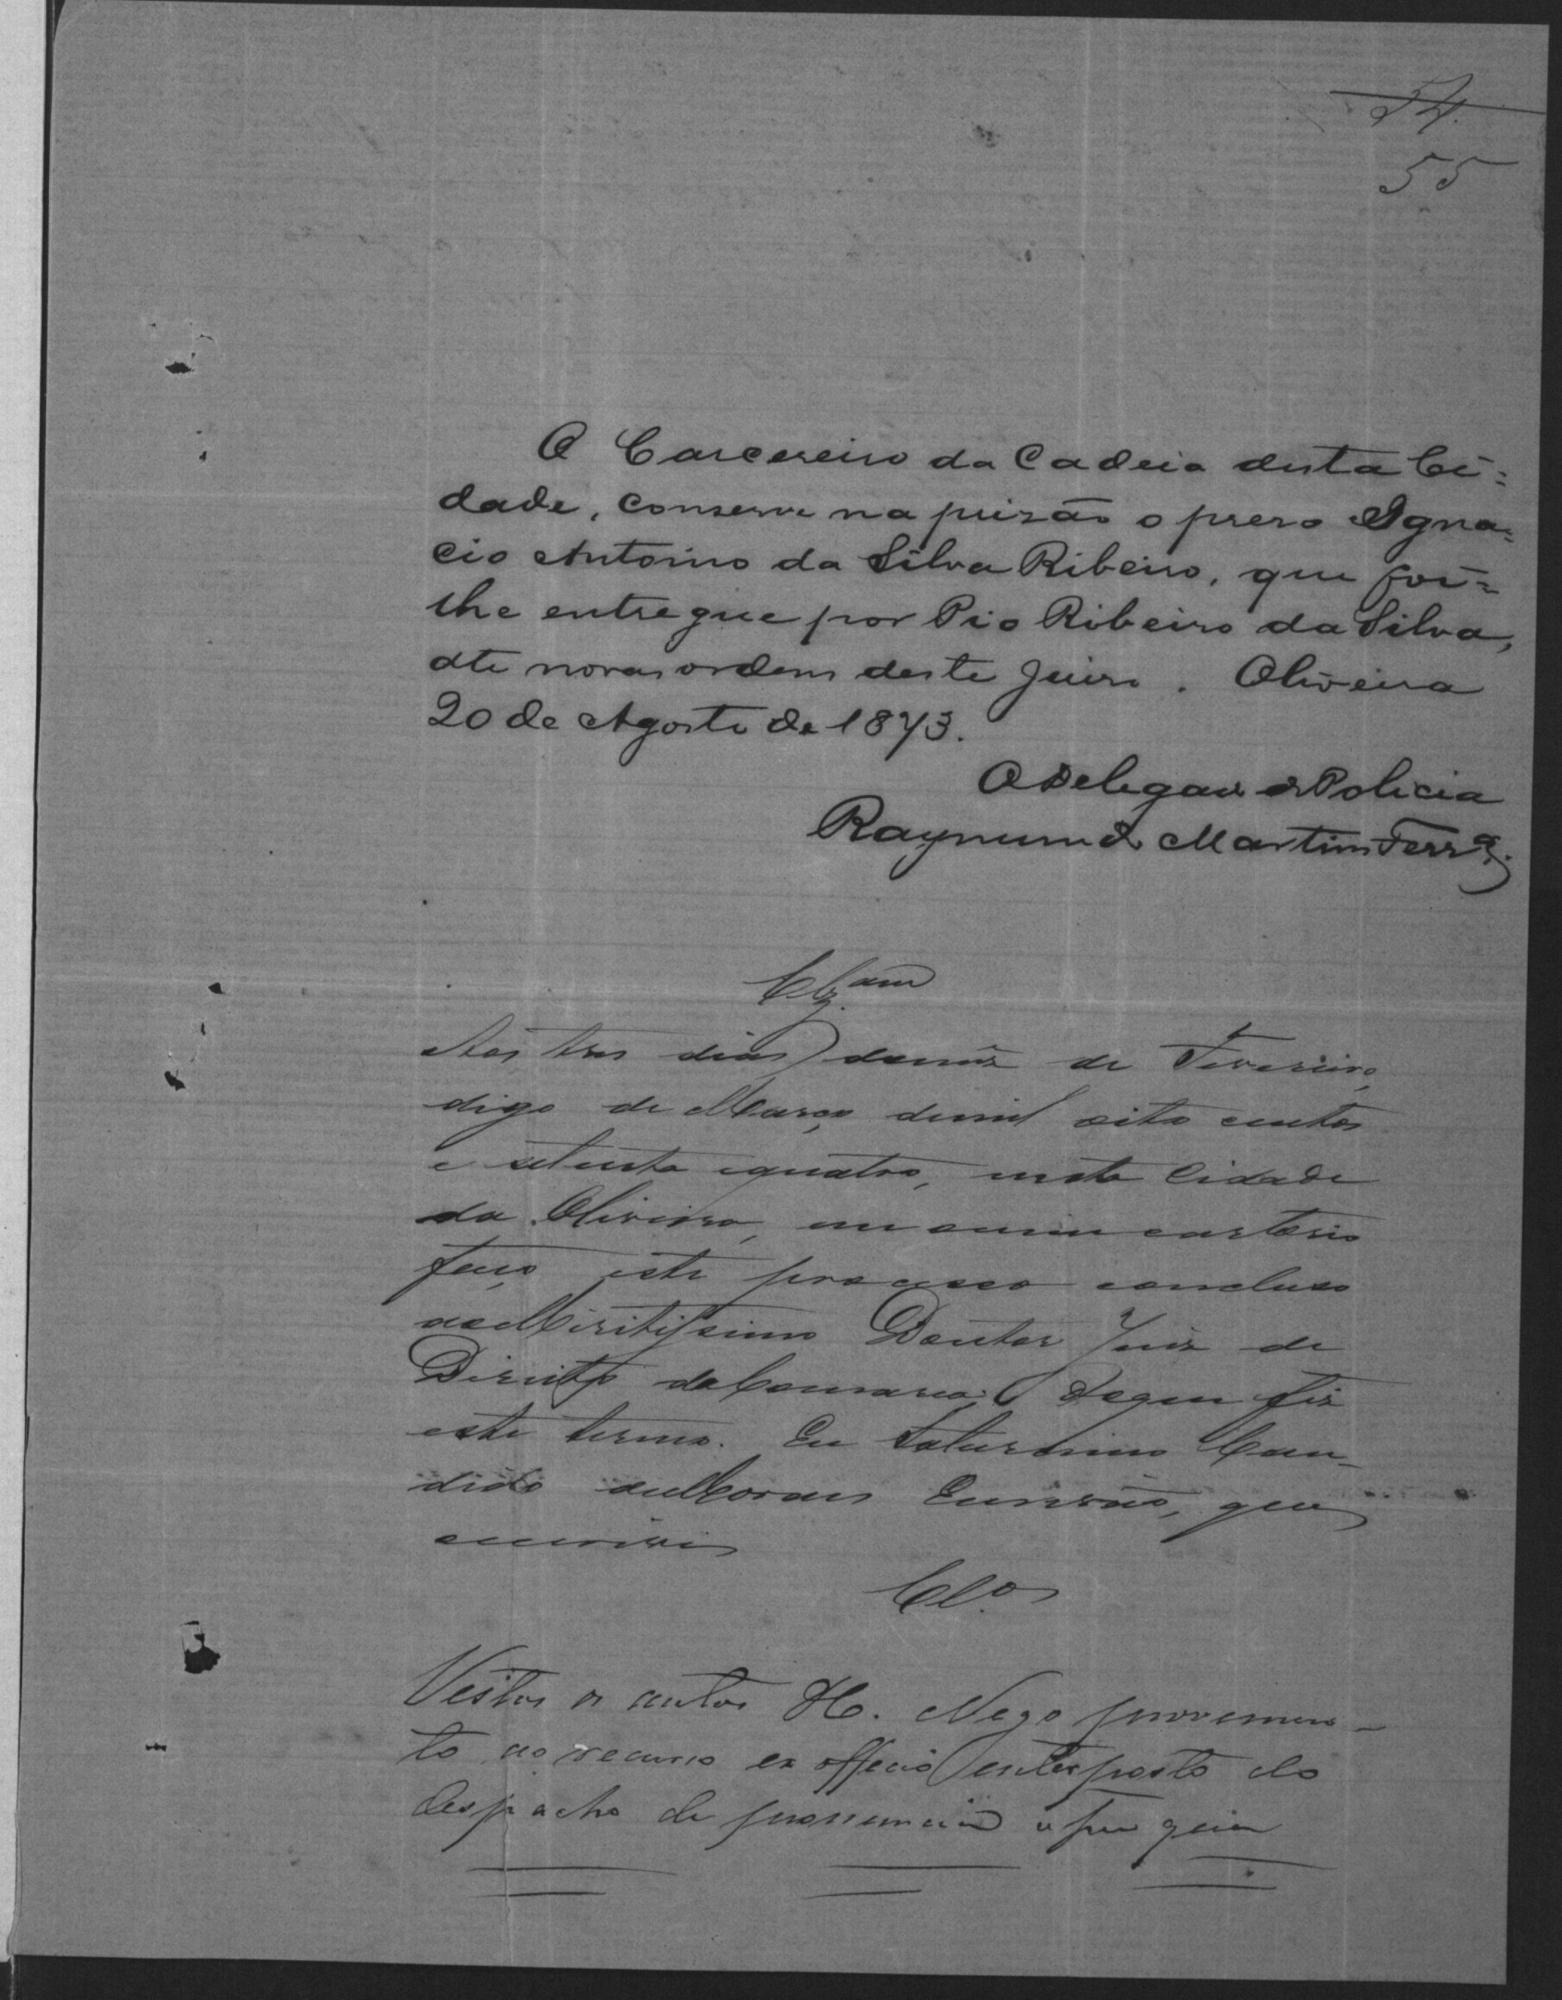 54.
55
O Carcereiro da Cadeia desta Ci=
dade, conserve na prizão o prezo Igna=
cio Antonio da Silva Ribeiro, que foi=
lhe entregue por Pio Ribeiro da Silva,
ate novas ordens deste Juizo. Oliveira
20 de Agosto de 1873.
O Delegado de Policia
Raymundo Martins Ferrª.
Clz.am
Aos tres dias do mez de Fevereiro,
digo de Março de mil oito centos
e setenta e quatro, nesta Cidade
da Oliveira, em o meu cartorio
faço este processo concluso
ao Meritissimo Doutor Juiz de
Direito da Comarca, do que fiz
este termo. Eu Saturnino Can-
dido de Moraes Escrivão, que
escrevi
Cl.os
Vistos os autos &. Nego provimen-
to ao recurso ex officio interposto do
despacho de pronuncia